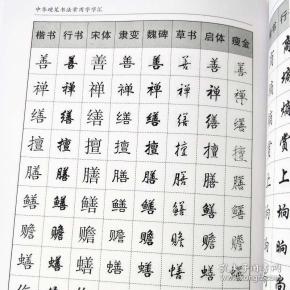 中华硬笔书法常用字字汇
楷书 行书 宋体 隶变 魏碑 草书 启体 瘦金
善 善 善 善 善 善 善 善
禅 禅 禅 禅 禅 禅 禅 禅
缮 缮 缮 缮 缮 缮 缮 缮
擅 擅 擅 擅 擅 擅 擅 擅
膳 膳 膳 膳 膳 膳 膳 膳
鳝 鳝 鳝 鳝 鳝 鳝 鳝 鳝
赡 赡 赡 赡 赡 赡 赡 赡
蟮 蟮 蟮 蟮 蟮 蟮 蟮 蟮
行
上